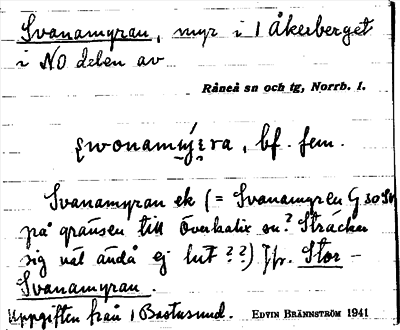 Svanamyran, myr i 1 Åkerberget
i NO delen av
Råneå sn och tg, Norrb. l.
bf. fem.
Svanamyran ek (= Svanamyren G 30 Sv
på gränsen till Överkalix sn? Sträcker
sig väl ändå ej hit??) Jfr. Stor-
Svanamyran.
Uppgiften från 1 Bastusund. EDVIN BRÄNNSTRÖM 1941